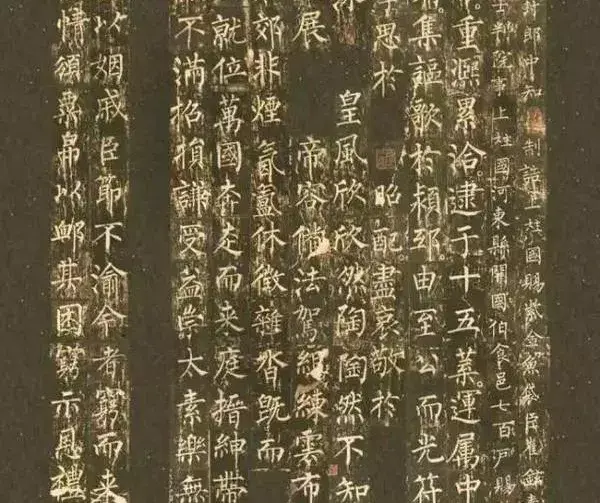 封郎中知制誥上柱國賜紫金魚袋臣崔
士判院事上柱國河東縣開國伯食邑七百戶賜
重熙累洽逮于十五葉運屬中
集謳歌於潁邸由至公而光符
孝思於 昭配盡哀敬於
皇風欣欣然陶陶然不知
展 帝容備法駕組練雲布
郊非煙氛氳休徵雜沓既而
就位萬國奔走而来庭搢紳帶
不滿招損謙受益崇太素樂無
以姻戚臣節不渝今者窮而来
情頒粟帛以卹其困窮示恩禮